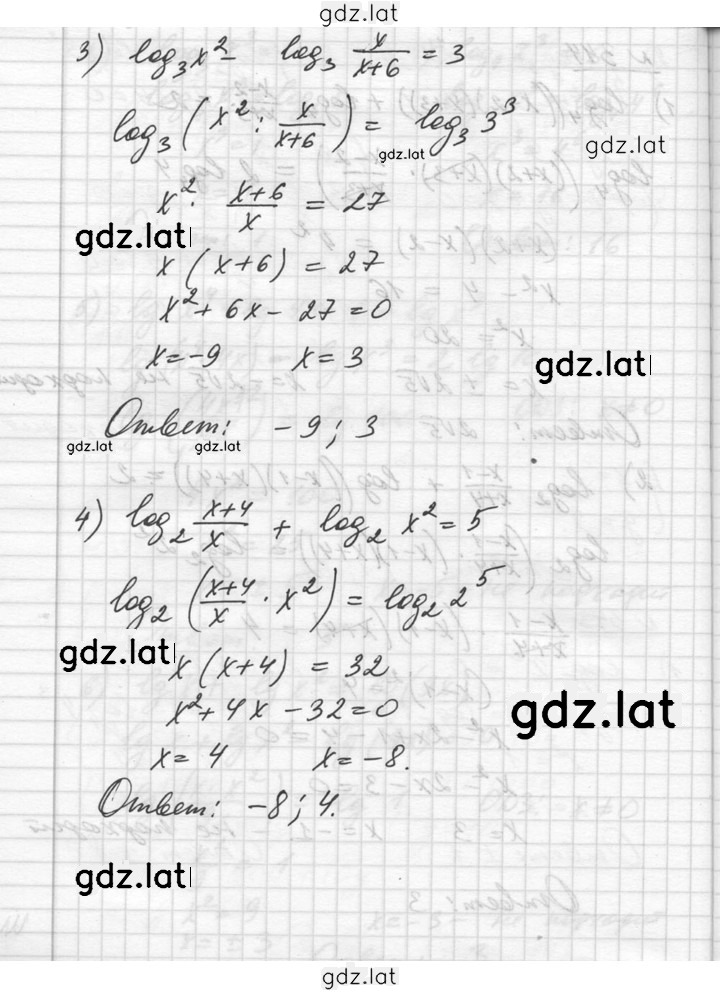 gdz.lat
3) log₃x² - log₃ x/(x+6) = 3
log₃(x² : x/(x+6)) = log₃3³
gdz.lat
gdz.lat
x² · (x+6)/x = 27
gdz.lat
x(x+6) = 27
x² + 6x - 27 = 0
x = -9 x = 3
gdz.lat
Ответ: -9; 3
gdz.lat gdz.lat
4) log₂ (x+4)/x + log₂ x² = 5
log₂((x+4)/x · x²) = log₂2⁵
gdz.lat
x(x+4) = 32
x² + 4x - 32 = 0
gdz.lat
x = 4 x = -8.
Ответ: -8; 4.
gdz.lat
gdz.lat